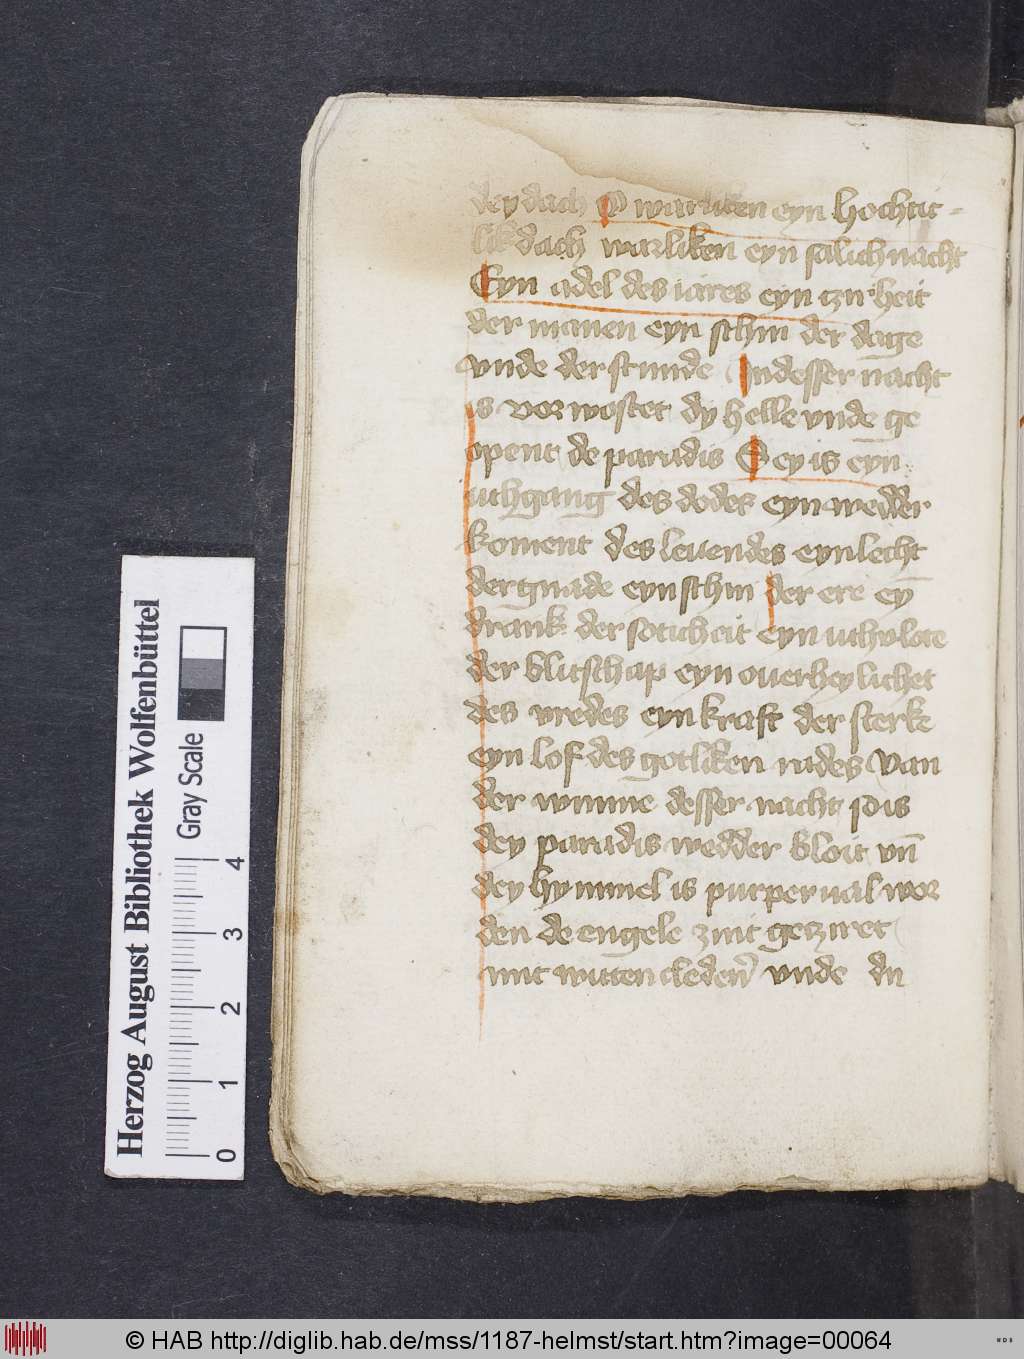 dey dach O warliken eyn hochtit-
lik dach warliken eyn salich nacht
Eyn adel des iares eyn tzirheit
der manen eyn schin der dage
vnde der stunde Indesser nacht
is vorwostet dy helle vnde ge
opent de paradis Sey is eyn
uthgang des dodes eyn wedder
koment des leuendes eyn lecht
der gnade eyn schin der ere ey̅
drank der soticheit eyn
der blitschap eyn
des vredes eyn kraft der sterke
eyn lof des gotliken rades Van
der wunne desser nacht so is
dey paradis wedder bloit vn̅
dey hymmel is purperual wor
den de engele zint getziret
mit witten cleder̅ vnde du
Herzog August Bibliothek Wolfenbüttel
Gray Scale
0 1 2 3 4
© HAB http://diglib.hab.de/mss/1187-helmst/start.htm?image=00064